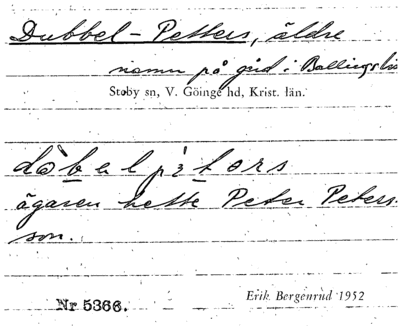 Dubbel-Petters, äldre
namn på gård i Ballingslöv
Stoby sn, V. Göinge hd, Krist. län.
dò̀belpètors
ägaren hette Peter Peters-
son.
Nr 5366. Erik Bergenrud 1952